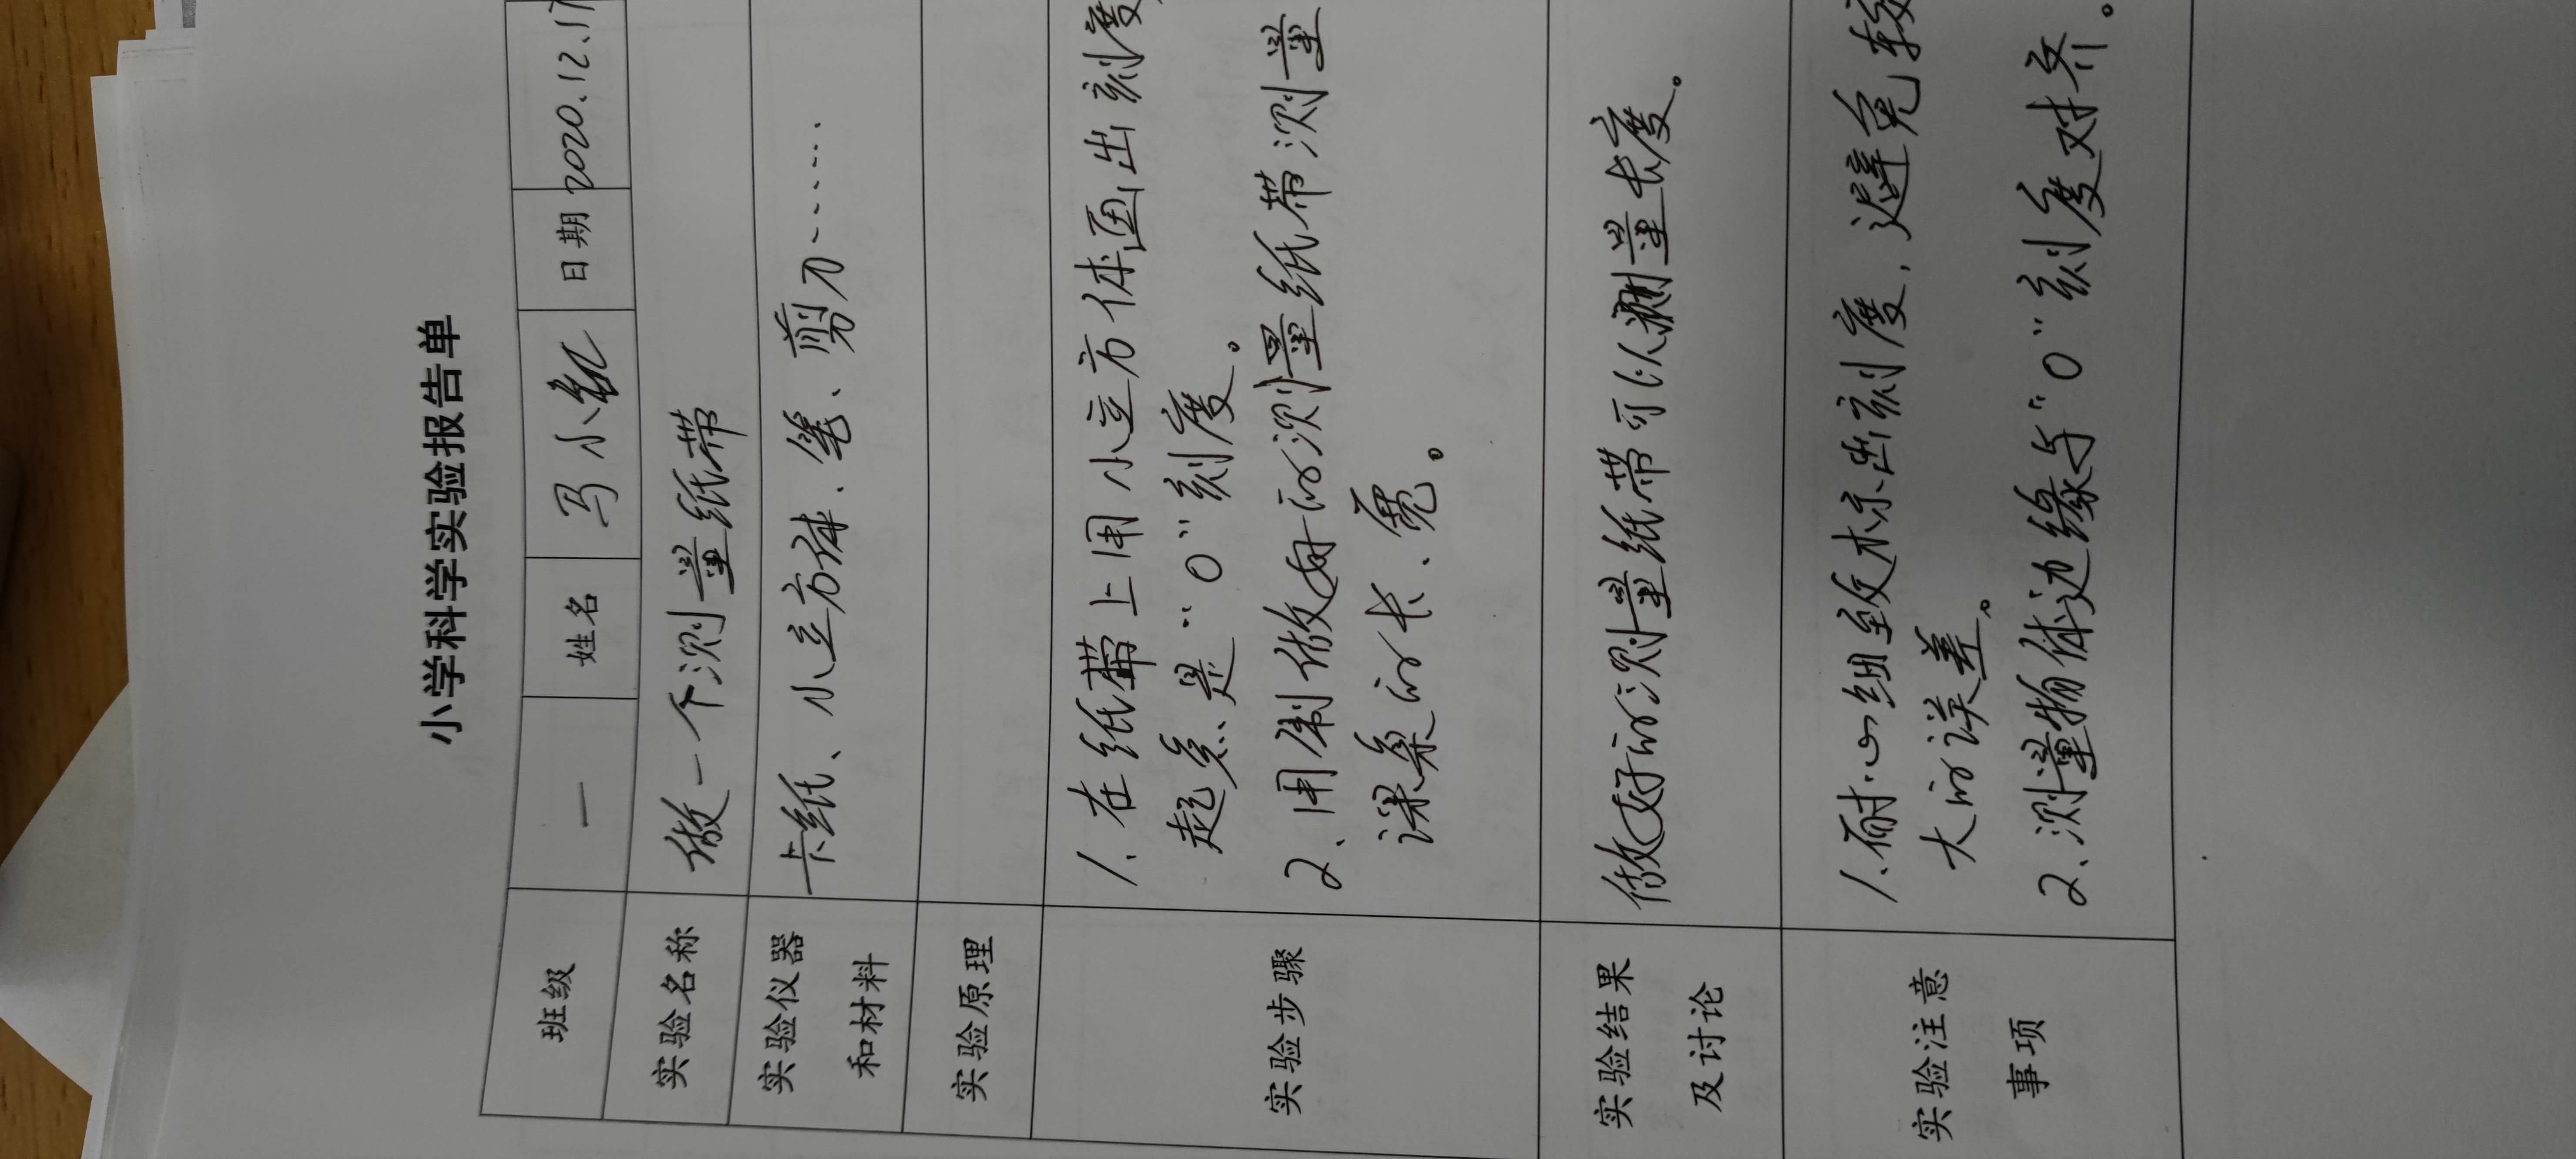 小学科学实验报告单
班级 一 姓名 马小 日期 2020.12.17
实验名称 做一个测量纸带
实验仪器 卡纸、小立方体、笔、剪刀……
和材料
实验原理
实验步骤
1.在纸带上用小立方体画出刻度,
起点是"0"刻度。
2、用制做好的测量纸带测量
课桌的长、宽。
实验结果
及讨论
做好的测量纸带可以测量长度。
实验注意
事项
1.耐心细致标出刻度,避免较
大的误差。
2、测量物体边缘与"0"刻度对齐。